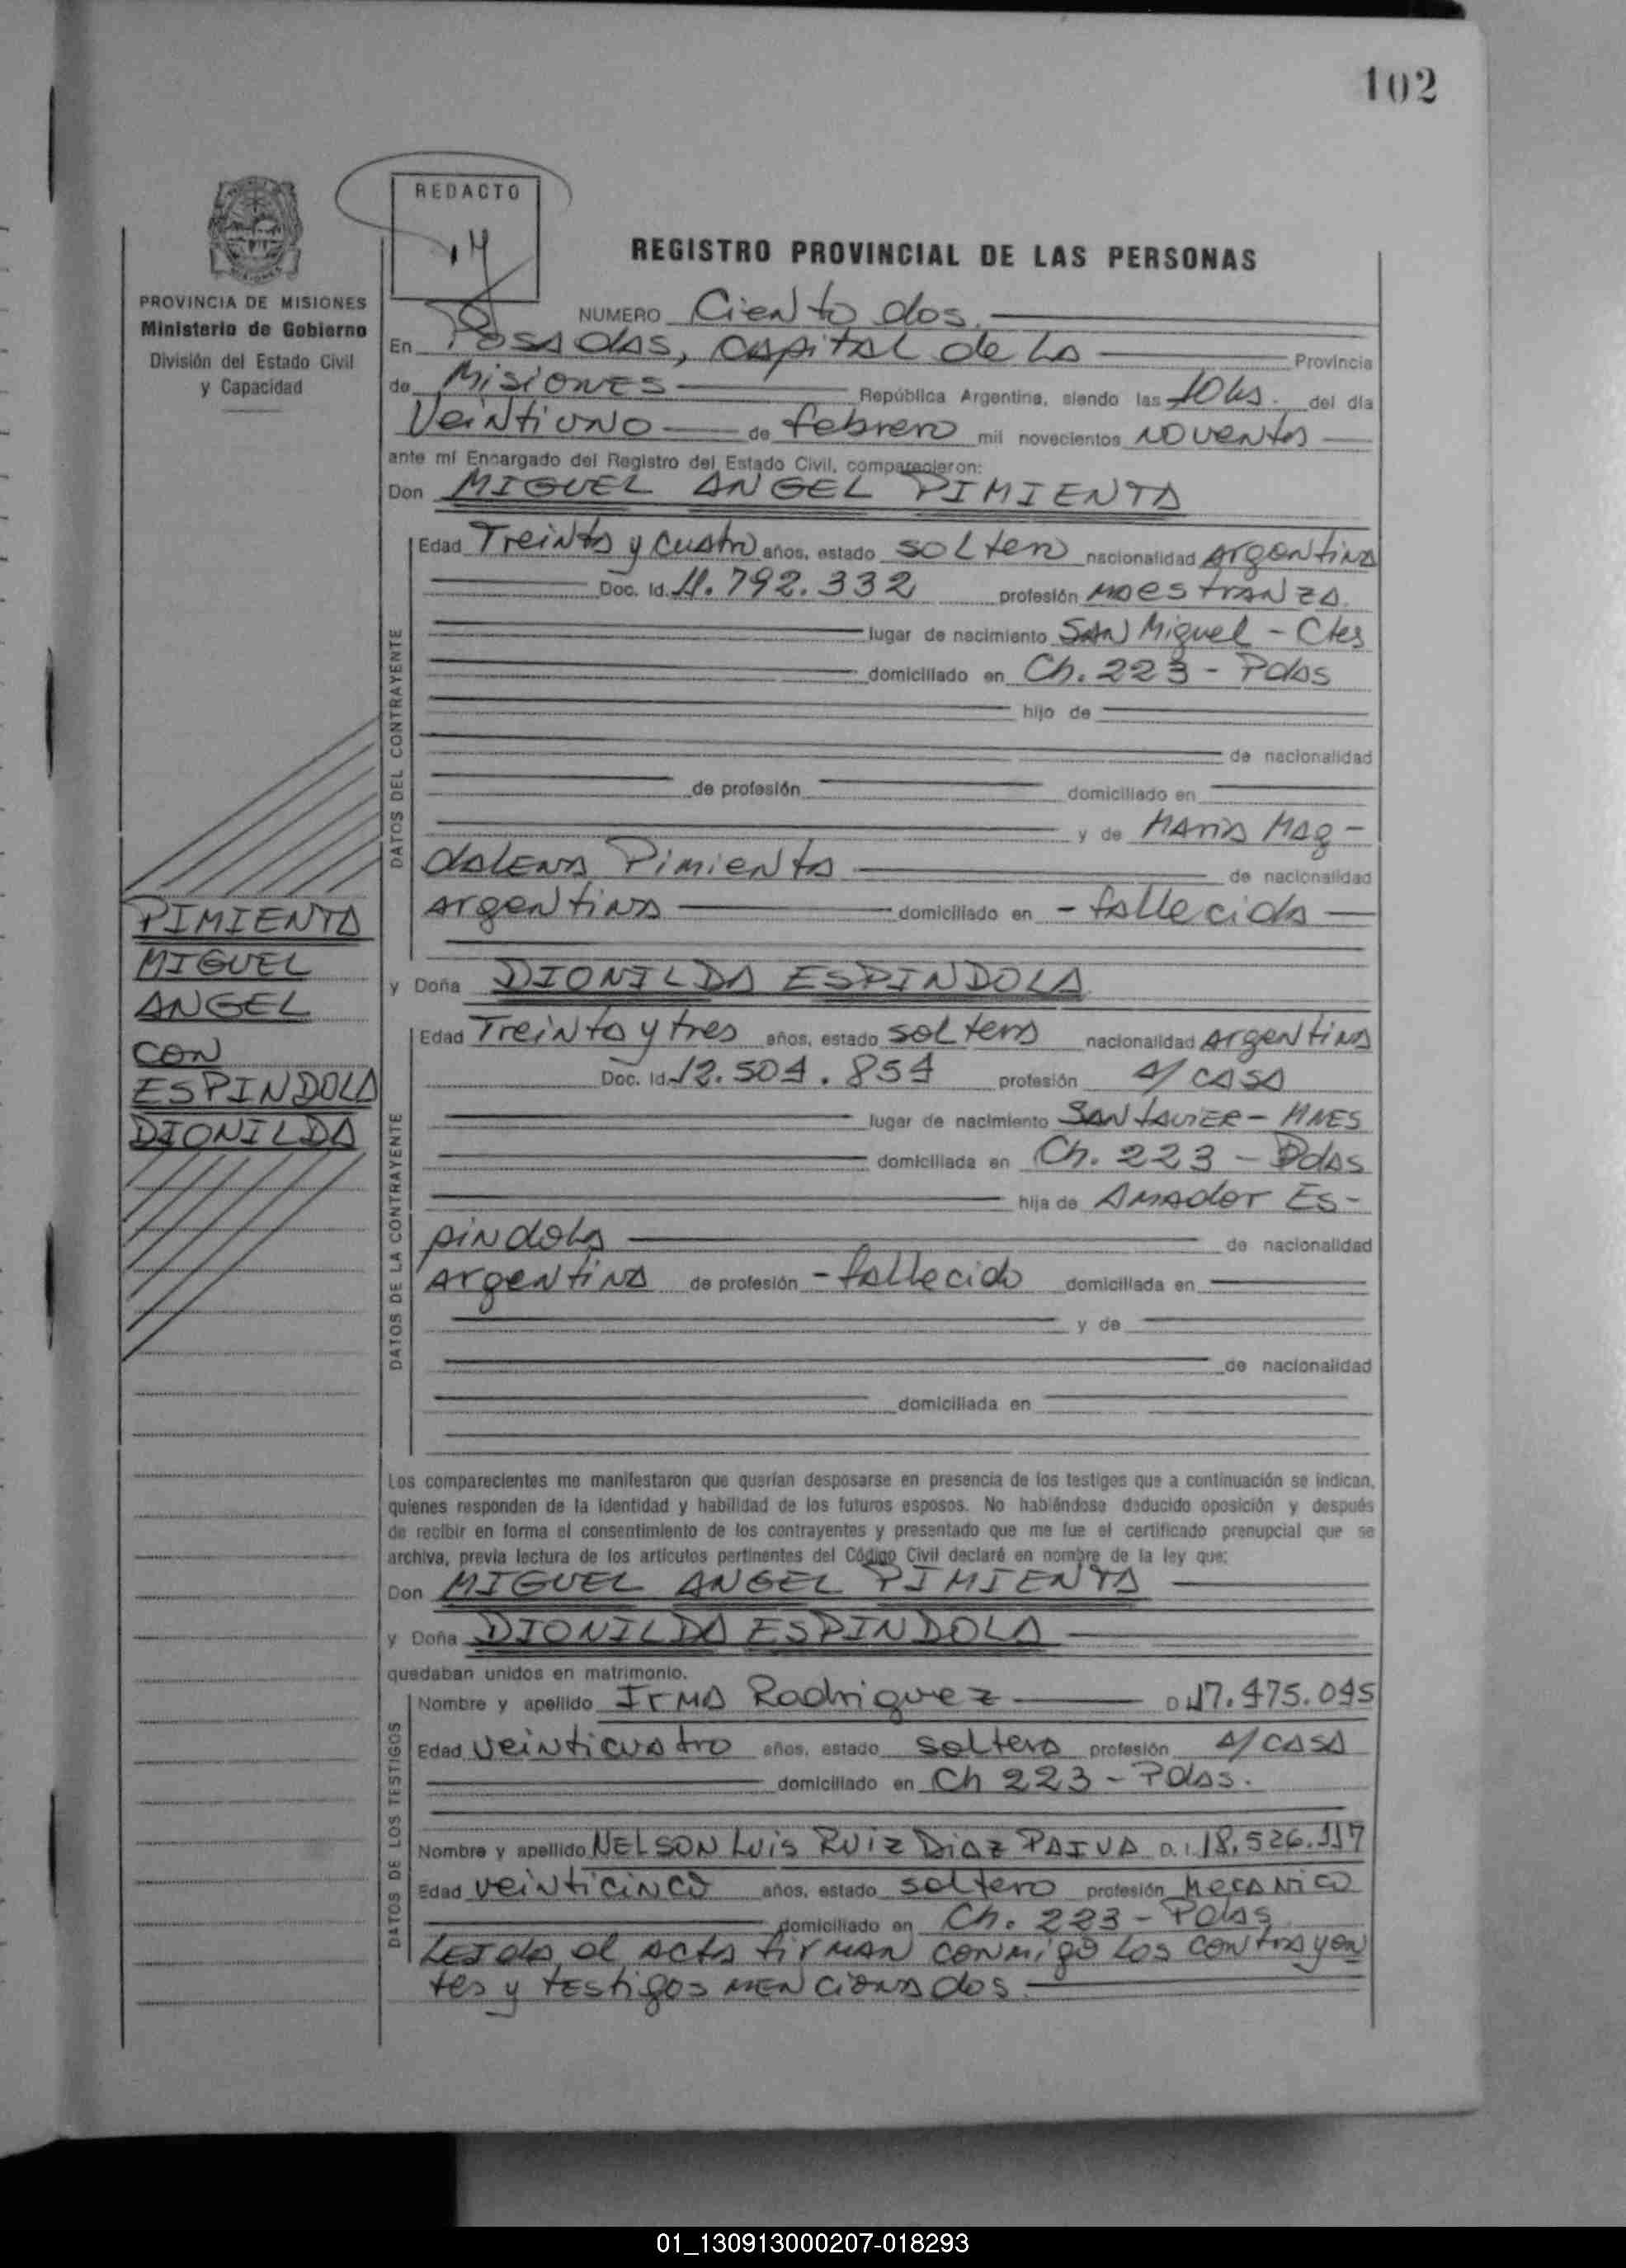 102
REDACTO
14
PROVINCIA DE MISIONES
Ministerio de Gobierno
División del Estado Civil
y Capacidad
REGISTRO PROVINCIAL DE LAS PERSONAS
NUMERO Ciento dos.
En Posadas, capital de la Provincia
de Misiones República Argentina, siendo las 10hs. del día
Veintiuno de febrero mil novecientos noventa
ante mí Encargado del Registro del Estado Civil, comparecieron:
Don MIGUEL ANGEL PIMIENTA
DATOS DEL CONTRAYENTE
Edad Treinta y cuatro años, estado soltero nacionalidad Argentina
Doc. Id. 11.792.332 profesión maestranza.
lugar de nacimiento San Miguel - Ctes
domiciliado en Ch. 223 - Pdas
hijo de
de nacionalidad
de profesión domiciliado en
y de Maria Mag-
dalena Pimienta de nacionalidad
Argentina domiciliado en - fallecida
PIMIENTA
MIGUEL
ANGEL
CON
ESPINDOLA
DIONILDA
y Doña DIONILDA ESPINDOLA
DATOS DE LA CONTRAYENTE
Edad Treinta y tres años, estado soltera nacionalidad Argentina
Doc. Id. 12.504.854 profesión a/ casa
lugar de nacimiento San Javier - Mnes
domiciliada en Ch. 223 - Pdas
hija de Amador Es-
pindola de nacionalidad
Argentina de profesión - fallecido domiciliada en
y de
de nacionalidad
domiciliada en
Los comparecientes me manifestaron que querían desposarse en presencia de los testigos que a continuación se indican,
quienes responden de la identidad y habilidad de los futuros esposos. No habiéndose deducido oposición y después
de recibir en forma el consentimiento de los contrayentes y presentado que me fue el certificado prenupcial que se
archiva, previa lectura de los artículos pertinentes del Código Civil declaré en nombre de la ley que:
Don MIGUEL ANGEL PIMIENTA
y Doña DIONILDA ESPINDOLA
quedaban unidos en matrimonio.
DATOS DE LOS TESTIGOS
Nombre y apellido Irma Rodriguez D.I. 17.475.045
Edad veinticuatro años, estado soltera profesión a/ casa
domiciliado en Ch 223 - Pdas.
Nombre y apellido Nelson Luis Ruiz Diaz Paiva D.I. 18.526.117
Edad veinticinco años, estado soltero profesión mecanico
domiciliado en Ch. 223 - Pdas
Leida el acta firman conmigo los contrayen
tes y testigos mencionados.
01_130913000207-018293